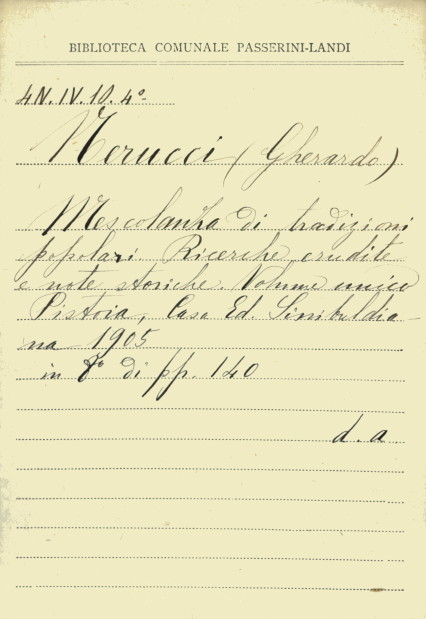 BIBLIOTECA COMUNALE PASSERINI-LANDI
4N.IV.10.4º
Nerucci (Gherardo)
Mescolanza di tradizioni
popolari Ricerche erudite
e note storiche. Volume unico
Pistoia, Casa Ed. Sinibuldia-
na 1905
in 8º di pp. 140
d. a.